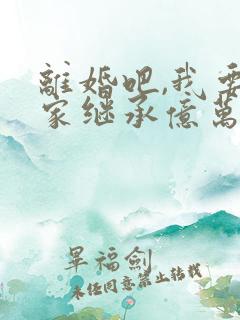 離婚吧,我要
家继承億萬
旱福劍
未经同意禁止转载